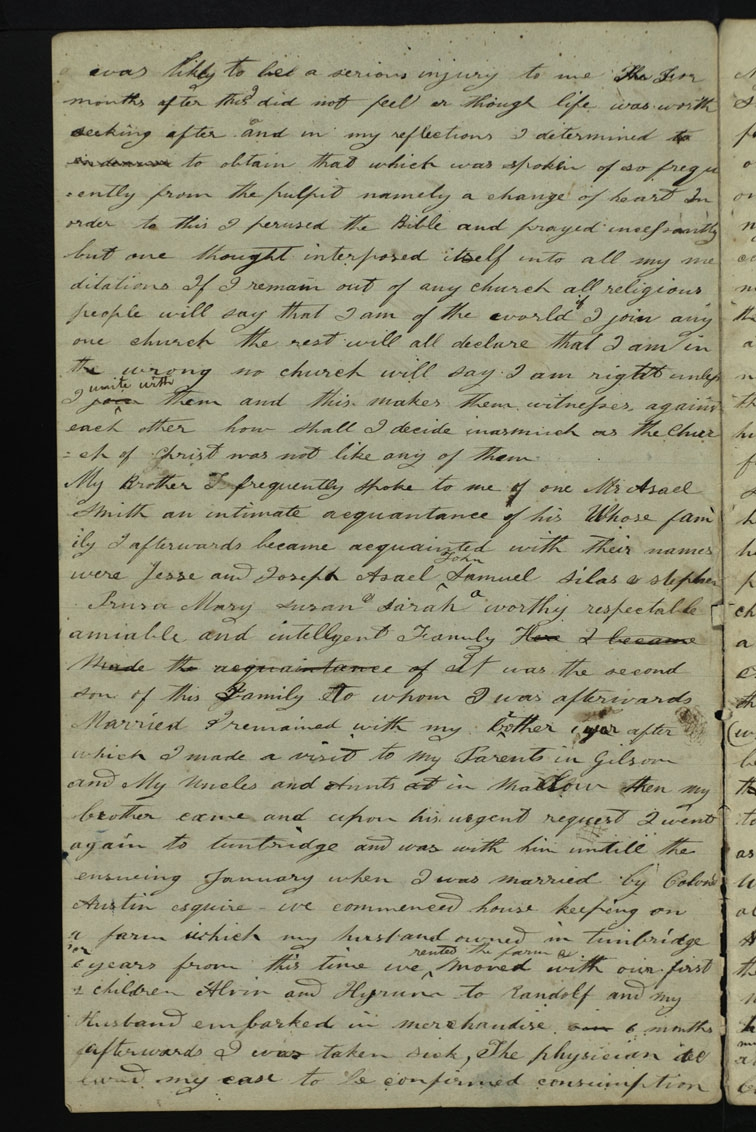 was likely to be a serious injury to me The For
months after this I did not feel as though life was worth
seeking after and in my reflections I determined to
to obtain that which was spoken of so frequ
=ently from the pulpit namely a change of heart In
order to this I perused the Bible and prayed incessantly
but one thought interposed itself into all my me
ditations If I remain out of any church all religious
people will say that I am of the world if I join any
one church the rest will all declare that I am in
the wrong no church will say I am right unless
I join unite with them and this makes them witnesses against
each other how shall I decide inasmuch as the Chur
=ch of Christ was not like any of them
My Brother I frequently spoke to me of one Mr Asael
Smith an intimate acquantance of his Whose fam
ily I afterwards became acquainted with Their names
were Jesse and Joseph Asael John Samuel Silas & stephen
Prusa Mary Susan & Sarah a worthy respectable
amiable and intellygent Family Here I became
Made the acquaintance of It was the second
son of this Family to whom I was afterwards
Married I remained with my brother 1 year after
which I made a visit to My Parents in Gilson
and My Uncles and Aunts at in Marlow then my
brother came and upon his urgent request I went
again to tunbridge and was with him untill the
ensueing January when I was married by Colonel
Austin esquire - we commenced house keeping on
a farm which my husband owned in tunbridge
years from this time we rented the farm & moved with our first
2 children Alvin and Hyrum to Randolf and my
Husband embarked in merchandise 6 months
afterwards I was taken sick, The physician de
my case to be confirmed consumption